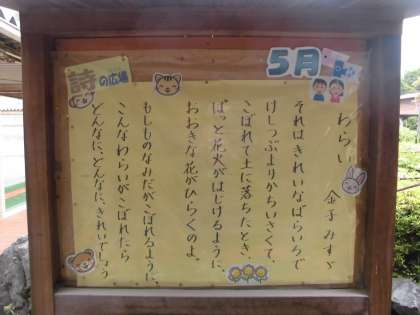 5月
詩の広場
わらい
金子みすゞ
それはきれいなばらいろで
けしつぶよりかちいさくて、
こぼれて土に落ちたとき、
ぱっと花火がはじけるように、
おおきな花がひらくのよ。
もしものなみだがこぼれるように、
こんなわらいがこぼれたら
どんなに、どんなに、きれいでしょう